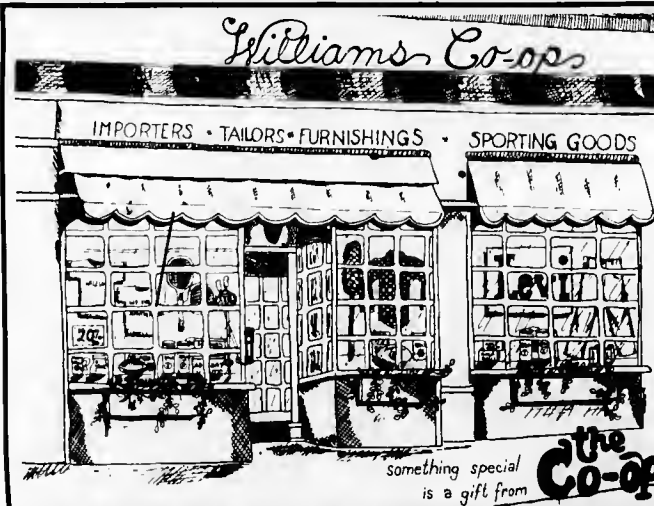 Williams Co-ops
IMPORTERS • TAILORS • FURNISHINGS • SPORTING GOODS
Levi
20%
something special
is a gift from
the
Co-op